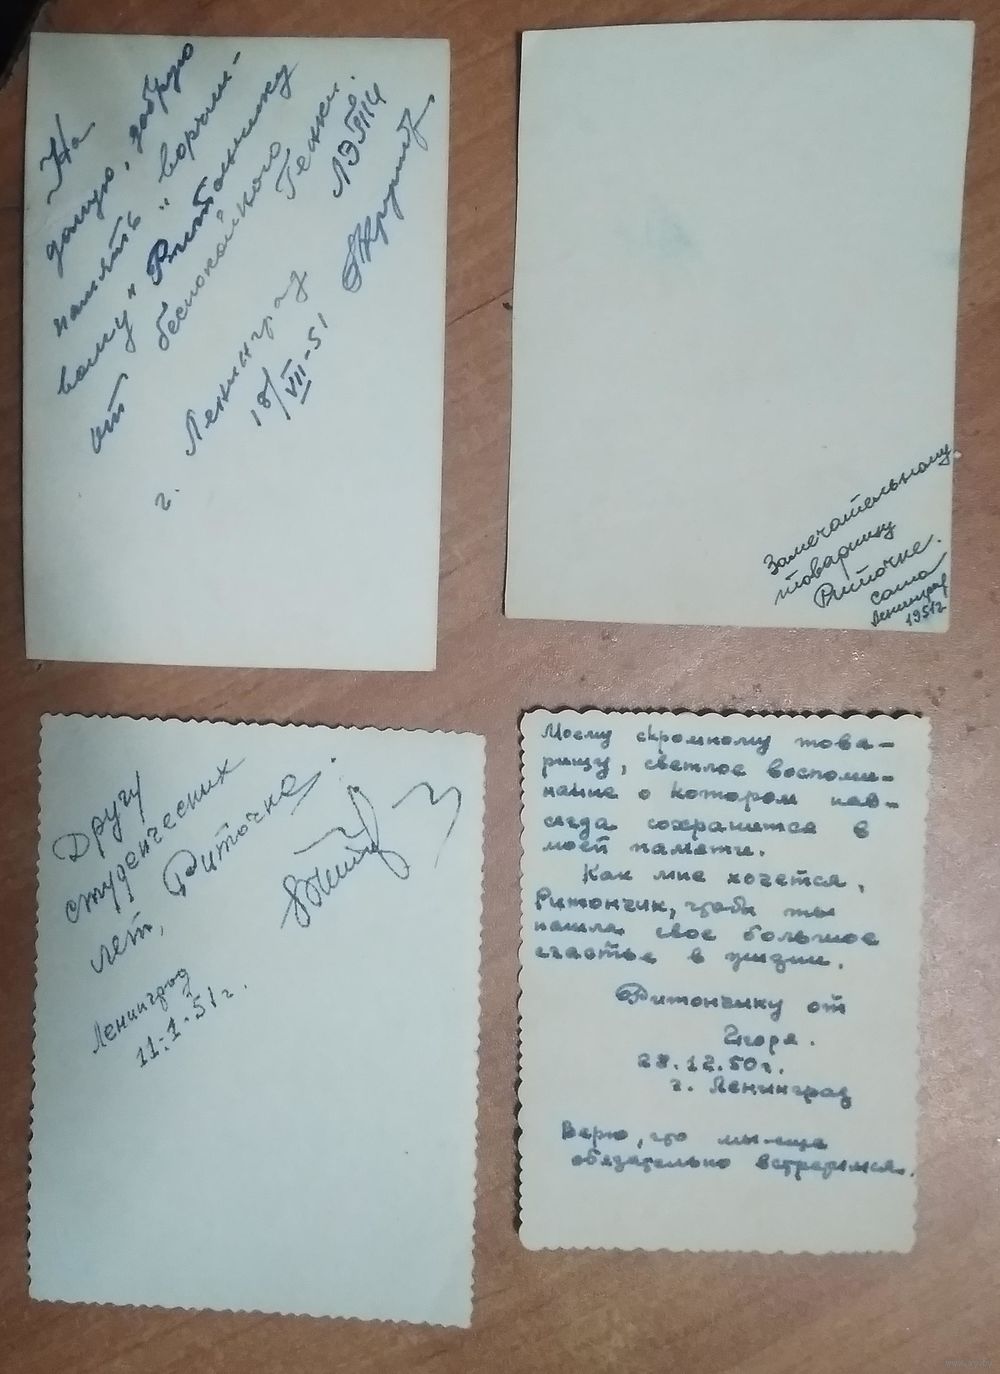 На
долгую, добрую
память „ворчли-
вому" Ритончику
от беспокойного
Генки.
ЛЭТИ
г. Ленинград
18/VII-51
Замечательному
товарищу
Риточке.
Саша
Ленинград
1951г
Другу
студенческих
лет, Риточке.
Ленинград
11.1.51г.
Моему скромному това-
рищу, светлое воспоми-
нание о котором нав-
сегда сохранится в
моей памяти.
Как мне хочется,
Ритончик, чтобы ты
нашла свое большое
счастье в жизни.
Ритончику от
Игоря.
28.12.50г.
г. Ленинград
Верю, что мы еще
обязательно встретимся.